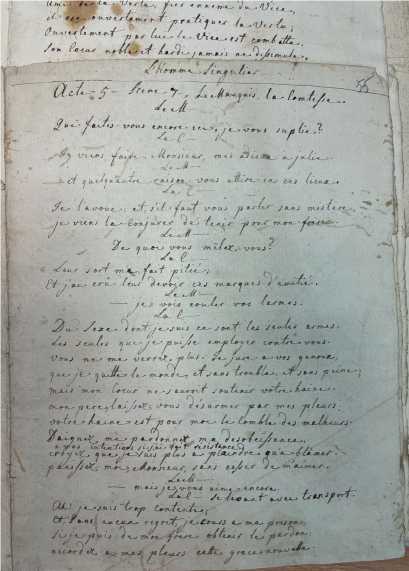 ami de la Vertu, fier ennemi du Vice,
et ouvertement pratiquer la Vertu;
Ouvertement par lui le Vice est combattu.
Son Coeur noble et hardi jamais ne dissimule.
L'homme Singulier
Acte - 5 - Scene 7, Le Marquis, la Comtesse.
Le M -
Que faites-vous encore ici, je vous suplie?
La C -
J'y viens faire Monsieur, mes adieux a julie
Le M -
et quelqu'autre raison vous attire en ces lieux.
La C -
Je l'avoue, et s'il faut vous parler sans mistere
je viens la conjurer de tenir pour mon frere
Le M -
De quoi vous mêlez-vous?
La C -
Leur sort me fait pitié;
Et j'ai crû leur devoir ces marques d'amitié.
Le M -
je vois couler vos larmes.
La C -
Du Sexe dont je suis ce sont les seules armes.
Les seules que je puisse employer contre vous.
Vous ne me verrez plus. Je jure a vos genoux,
que je quitte le monde et sans trouble, et sans peine;
mais mon Coeur ne sauroit soutenir votre haine
mon pere, laissez vous désarmer par mes pleurs;
votre haine est pour moi le comble des malheurs.
Daignez me pardonner ma desobeissance,
a vos intentions si j'ai fait resistance,
croyez que je suis plus a plaindre qu'a blâmer.
paraissez moi sans cesser de m'aimer.
Le M -
mais je vous aime encore
La C - se levant avec transport.
Ah! je suis trop contente;
et sans aucun regret, je cours a ma prison
si je puis de mon frere obtenir le pardon
accordez a mes pleurs cette grace nouvelle